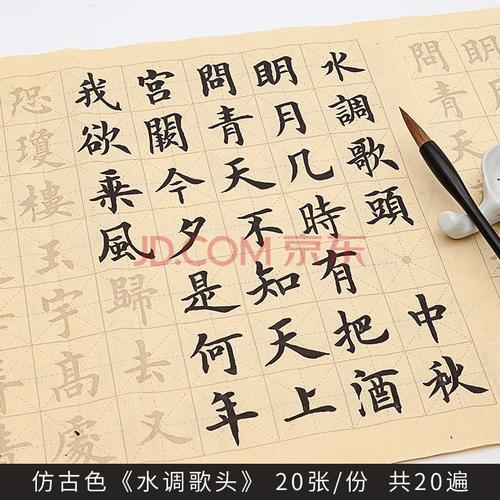 水調歌頭 中秋
明月几時有把酒
問青天不知天上
宮闕今夕是何年
我欲乘風歸去又
恐瓊樓玉宇高處
問青天
JD.COM 京东
仿古色《水调歌头》 20张/份 共20遍